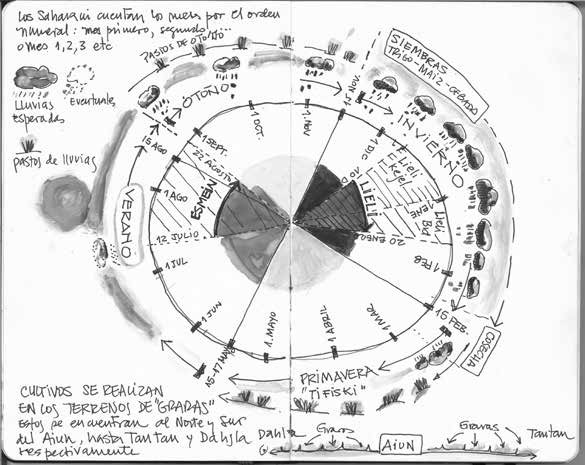 Los Saharaui cuentan los meses por el orden
numeral: mes primero, segundo....
o mes 1, 2, 3 etc
Lluvias
Esperadas
Eventuales
pastos de lluvias
PASTOS DE OTOÑO
SIEMBRAS
TRIGO-MAIZ-CEBADA
OTOÑO
INVIERNO
VERANO
PRIMAVERA
"TIFISKI"
COSECHA
15 NOV.
1 DIC
1 ENE
20 ENERO
1 FEB
15 FEB.
1 MAR
1 ABRIL
1. MAYO
15-17 MAYO
1 JUN
1 JUL
12 JULIO
1 AGO
15 AGO
22 AGOSTO
1 SEPT.
1 OCT.
1. NOV
ESMEIN
LIELI
Lieli
Lieli
Bid
CULTIVOS SE REALIZAN
EN LOS TERRENOS DE "GRADAS"
Estos se encuentran al Norte y Sur
del Aiun, hasta Tantan y Dahjla
respectivamente
Dahjla
AIUN
Tantan